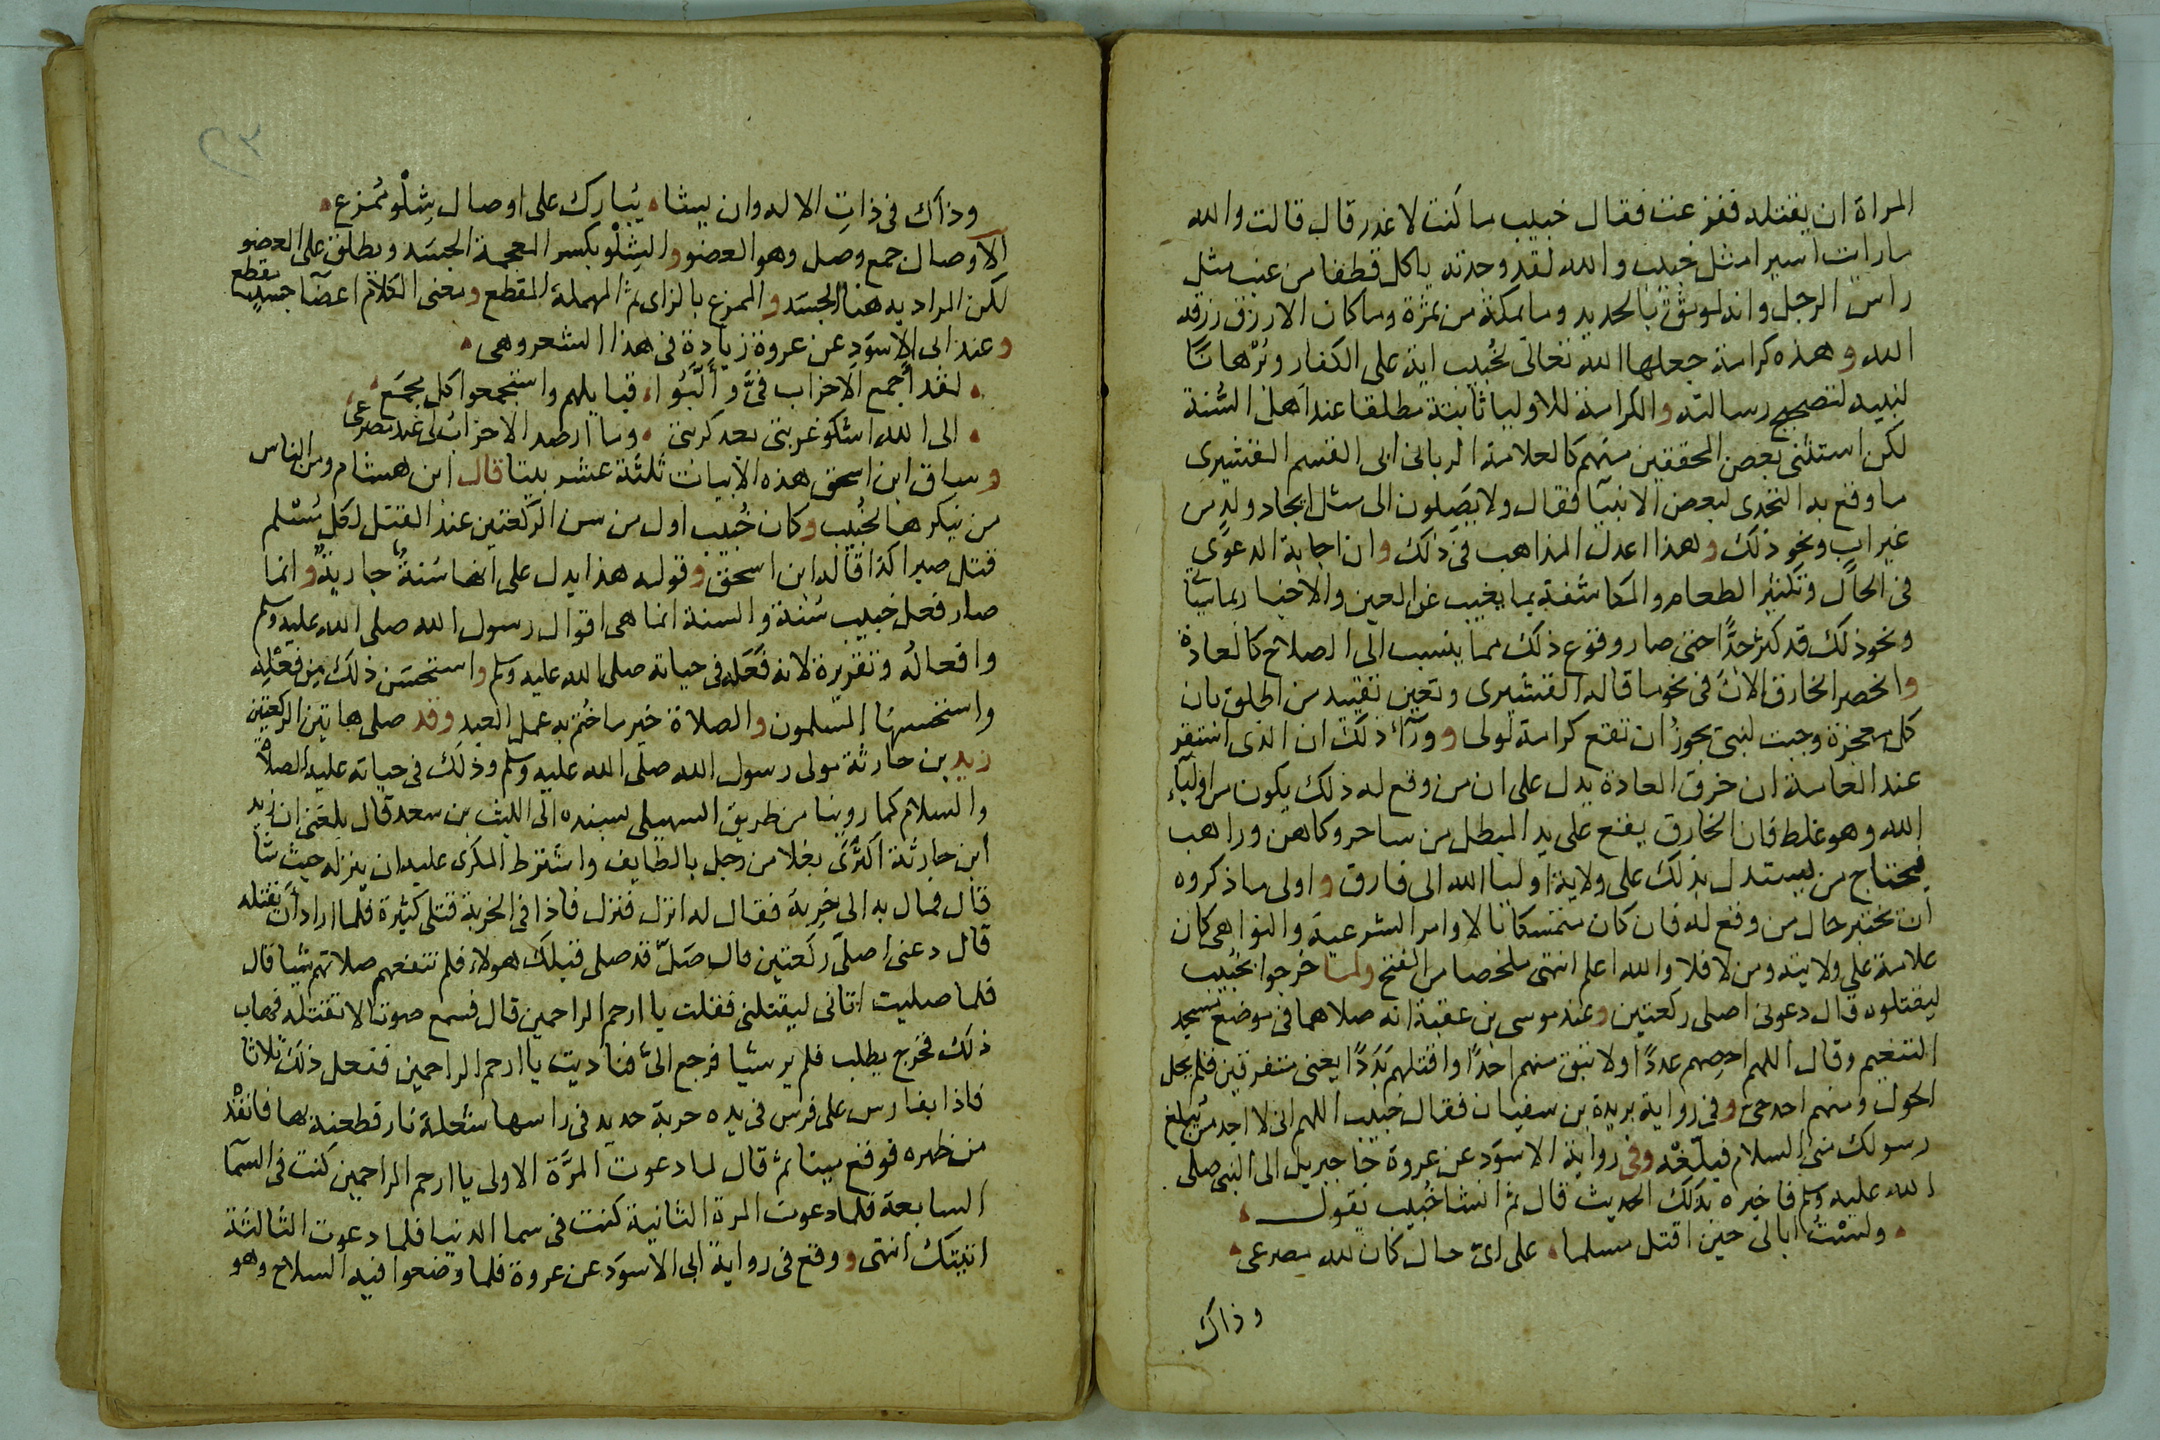 المراة ان يقتله ففزعت فقال خبيب ما كنت لاغدر قال قالت والله
ما رايت اسيرا مثل خبيب والله لقد وجدته ياكل قطفا من عنب مثل
راس الرجل وانه لموثق بالحديد وما بمكة من ثمرة وما كان الا رزق رزقه
الله وهذه كرامة جعلها الله تعالى لخُبيب اية على الكفار وبُرْهانًا
لنبيه لتصحيح رسالته والكرامة للاوليا ثابتة مطلقا عند اهل السُّنة
لكن استثنى بعض المحققين منهم كالعلامة الرباني ابي القسم القشيري
ما وقع به التحدى لبعض الانبيآ فقال ولا يَصِلون الى مثل ايجاد ولد من
غير ابٍ ونحو ذلك وهذا اعدل المذاهب في ذلك وان اجابة الدعوى
في الحال وتكثير الطعام والمكاشفة بما يغيب عن العين والاخبار بما سياتي
ونحو ذلك قد كثر جدًّا حتى صار وقوع ذلك مما ينسب الى الصلاح كالعادة
وانحصر الخارق الانَ في نحو ما قاله القشيرى وتعين تقييد من اطلق بان
كل معجزة وجبت لنبي يجوزُ ان تقع كرامة لولى ووراء ذلك ان الذى استقر
عند العامة ان خرق العادة يدل على ان من وقع له ذلك يكون من اوليآء
الله وهو غلط فان الخارق يقع على يد المبطل من ساحر وكاهن وراهب
فيحتاج من يستدل بذلك على ولاية اوليا الله الى فارق واولى ما ذكروه
ان يختبر حال من وقع له فان كان متمسكا بالاوامر الشرعية والنواهى كان
علامة على ولايته ومن لا فلا والله اعلم انتهى ملخصا من الفتح ولما خرجوا بخُبيب
ليقتلوه قال دعونى اصلى ركعتين وعند موسى بن عقبة انه صلاهما في موضع مسجد
التنعيم وقال اللهم احصِهم عددًا ولا تبق منهم احدًا واقتلهم بَدَدًا يعنى متفرقين فلم يحل
الحول ومنهم احد حى وفى رواية بريدة بن سفيان فقال خبيب اللهم انى لا اجد من يبلغ
رسولك منى السلام فبلّغْه وفى رواية الاسوَد عن عروة جا جبريل الى النبى صلى
الله عليه وسلم فاخبره بذلك الحديث قال ثم انشا خُبيب يقول
ولسْتُ ابالى حين اقتل مسلما على اىّ حال كان لله مصرعى
وذاك
٢٣
وذاك في ذاتِ الاله وان يشا يُبارك على اوصال شِلْوٍ مُمزع
الاوصال جمع وصل وهو العضو والشِلْو بكسر المعجمة الجسَد ويطلق على العضو
لكن المراد به هنا الجسَد والممزع بالزاى ثم المهملة المقطع ومعنى الكلام اعضآ جسد مقطع
وعند ابى الاسوَد عن عروة زيادة في هذا الشعر وهى
لقد أَجمع الاَحزاب فيَّ وأَلَّبُوا قبايلهم واستجمعوا كل مجمَع
الى الله اشكو غربتى بعد كربتى وما ارصد الاحزاب لى عند مصرعى
وساق ابن اسحق هذه الابيات ثلثة عشر بيتا قال ابن هشام ومن الناس
من ينكرها لخُبيب وكان خُبيب اول من سن الركعتين عند القتل لكل مُسْلم
قتل صبرا كذا قاله ابن اسحق وقوله هذا يدل على انها سُنةٌ جاريةٌ وانما
صار فعل خبيب سُنة والسنة انما هى اقوال رسول الله صلى الله عليه وسلم
وافعالُه وتقريرة لانه فَعَله في حياته صلى الله عليه وسلم واستحسَن ذلك مِن فِعْلِه
واستحسنهُا المسلمون والصلاة خير ما خُتم به عمل العبد وقد صلى هاتين الركعتين
زيد بن حارثة مولى رسول الله صلى الله عليه وسلم وذلك في حياته عليه الصلاة
والسلام كما روينا من طريق السهيلى بسنده الى الليث بن سعد قال بلغنى ان زيد
ابن حارثة اكتَرَى بغلا من رجل بالطايف واشترط المكرى عليه ان ينزله حيث شا
قال فمال به الى خَرِبة فقال له انزل فنزل فاذا في الخربة قتلى كثيرة فلما اراد ان يقتله
قال دعنى اصلّى ركعتين قال صَلّ قد صلى قبلك هولاء فلم تنفعهم صلاتهم شيا قال
فلما صليت اتانى ليقتلنى فقلت يا ارحم الراحمين قال فسمع صوتا لا تقتله فهاب
ذلك فخرج يطلب فلم ير شيا فرجع الىّ فناديت يا ارحم الراحمين ففعل ذلك ثلاثا
فاذا بفارس على فرس في يده حربة حديد في راسها شعلة نار فطعنه بها فانفذ
من ظهره فوقع ميتا ثم قال لما دعوت المرَّة الاولى يا ارحم الراحمين كنت في السمآ
السابعة فلما دعوت المرة الثانية كنت في سما الدنيا فلما دعوت الثالثة
اتيتك انتهى ووقع في رواية ابى الاسوَد عن عروة فلما وضعوا فيه السلاح وهو